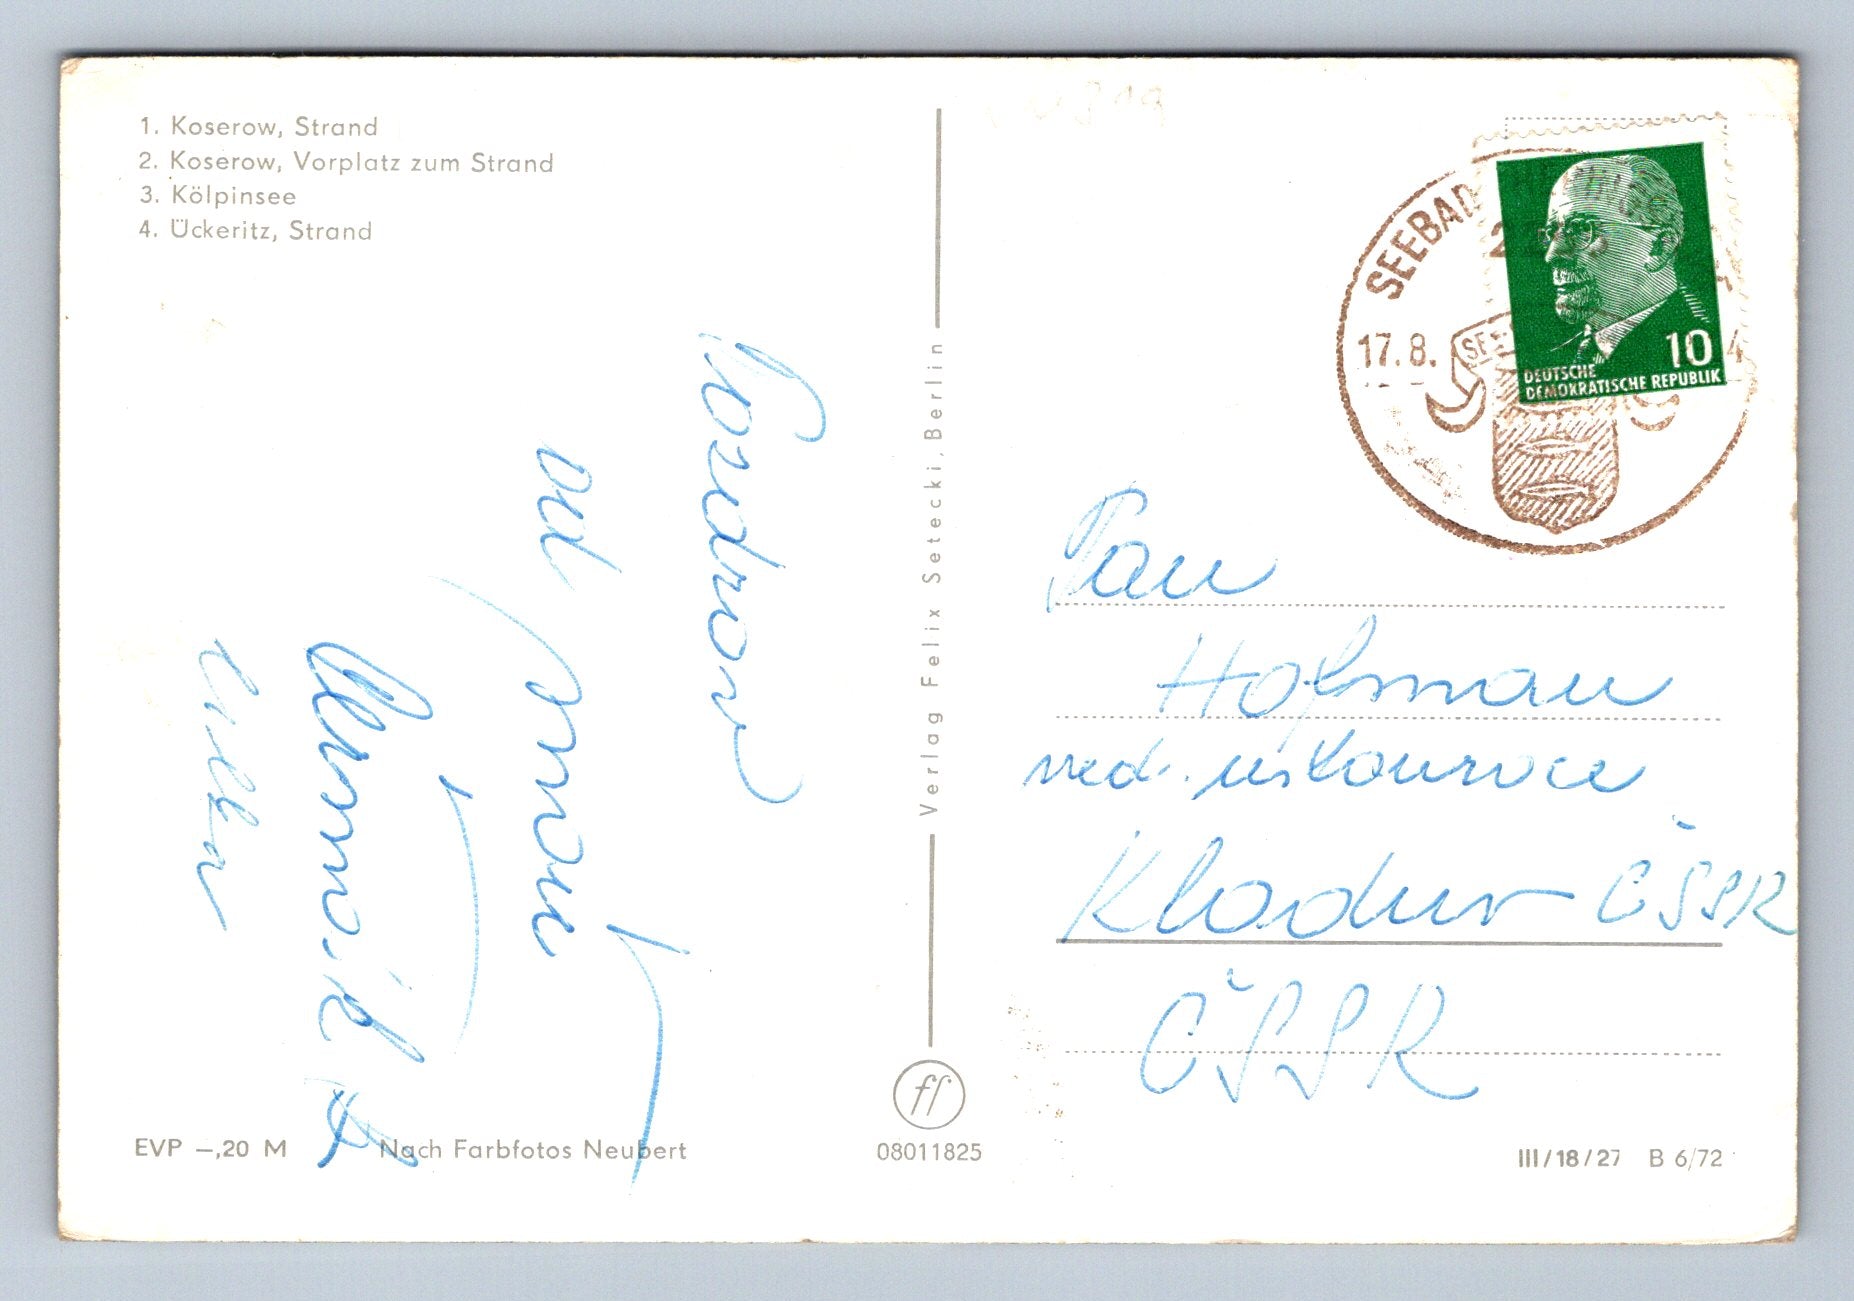 1. Koserow, Strand
2. Koserow, Vorplatz zum Strand
3. Kölpinsee
4. Ückeritz, Strand
Pozdrav
od moře
Verlag Felix Setecki, Berlin
SEEBAD
17.8.
4
10
DEUTSCHE
DEMOKRATISCHE REPUBLIK
Pan
Hofman
ved.
Kladno ČSSR
ČSSR
EVP –,20 M
Nach Farbfotos Neubert
08011825
III/18/27 B 6/72